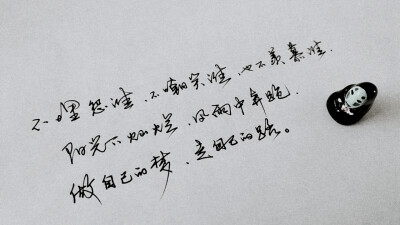 不埋怨谁，不嘲笑谁，也不羡慕谁，
阳光下灿烂，风雨中奔跑，
做自己的梦，走自己的路。